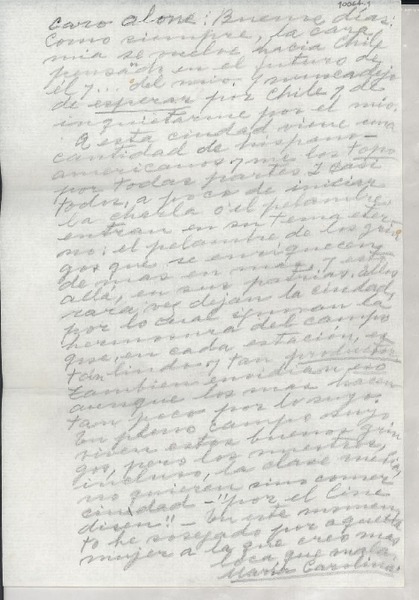 10064-1
Caro Alone: Buenos días:
Como siempre, la cara
mía se vuelve hacia Chile
pensado en el futuro de
él y... del mío. y nunca dejo
de esperar por Chile y de
inquietarme por el mío.
A esta ciudad viene una
cantidad de hispano-
americanos y me los topo
por todas partes y casi
todos, a poco de iniciar
la charla o el pelambre
entran en su tema eter
no: el pelambre de los grin
gos que se enriquecen
de mas en mas, y esto
allá, en sus patrias, ellos
rara vez dejan la ciudad,
por lo cual ignoran la
hermosura del campo
que, en cada estación, es
tan lindo y tan productor
También envidian eso
aunque los mas hacen
tan poco por lo suyo.
En pleno campo suyo
viven estos buenos grin
gos, pero los nuestros,
incluso, la clase media,
no quieren sino comer
ciudad - "por el Cine
dicen" - En este momen
to he sosejado por aquella
mujer a la que creo mas
loca que mala,
María Carolina.